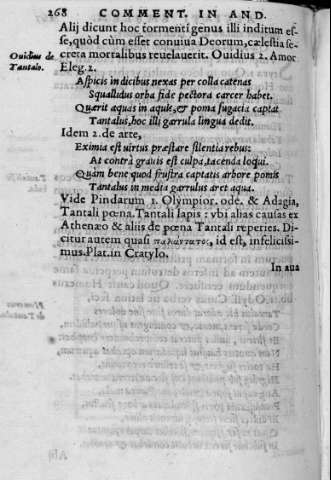 268 COMMENT. IN AND.
Alij dicunt hoc tormenti genus illi inditum es-
se, quòd cùm esset conuiua Deorum, cælestia se-
Ouidius de creta mortalibus reuelauerit. Ouidius 2. Amor
Tantalo. Eleg. 2.
Aspicis indicibus nexas per colla catenas
Squallidus orba fide pectora carcer habet.
Quærit aquas in aquis, & poma fugacia captat
Tantalus, hoc illi garrula lingua dedit.
Idem 2. de arte,
Eximia est uirtus præstare silentia rebus:
At contrà grauis est culpa, tacenda loqui.
Quàm bene quod frustra captatis arbore pomis
Tantalus in media garrulus aret aqua.
Vide Pindarum 1. Olympior. ode. & Adagia,
Tantali pœna. Tantali lapis: vbi alias causas ex
Athenæo & aliis de pœna Tantali reperies. Di-
citur autem quasi ταλάντατος, id est, infelicissi-
mus. Plat. in Cratylo.
In aua